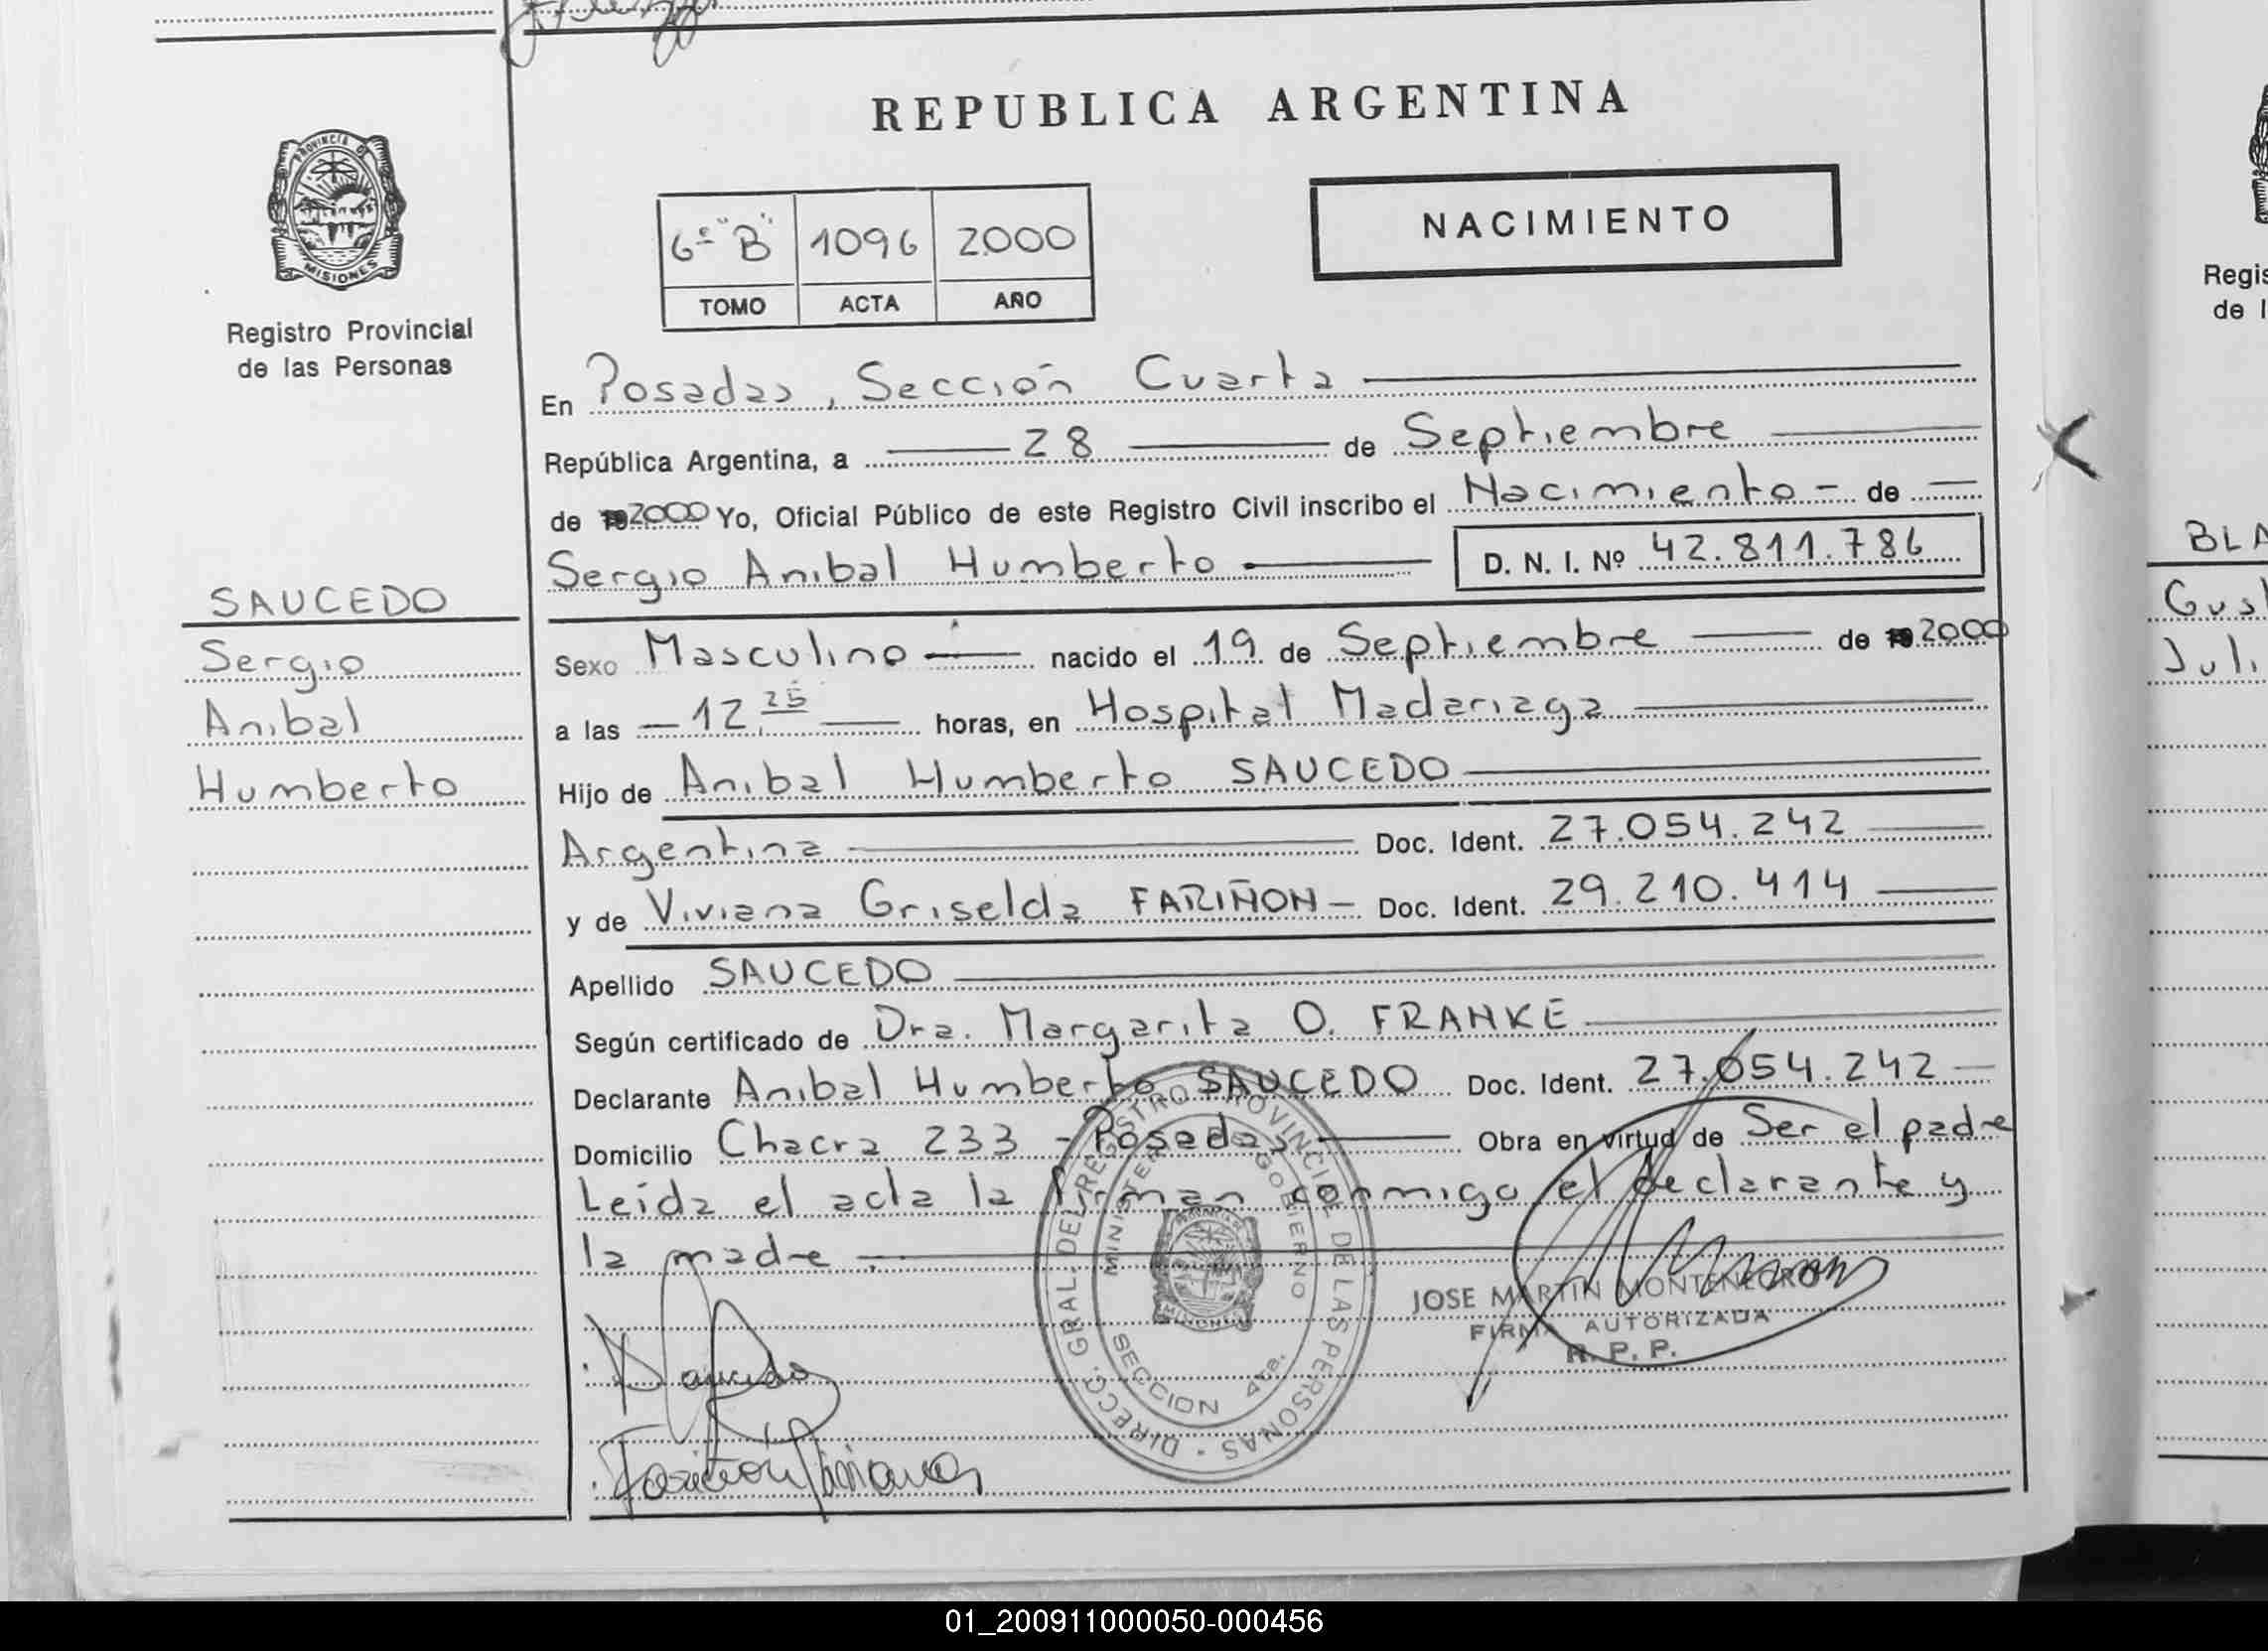 REPUBLICA ARGENTINA
PROVINCIA DE
MISIONES
Registro Provincial
de las Personas
NACIMIENTO
6º "B" 1096 2000
TOMO ACTA AÑO
En Posadas, Sección Cuarta
República Argentina, a 28 de Septiembre
de 2000 Yo, Oficial Público de este Registro Civil inscribo el Nacimiento - de
Sergio Anibal Humberto D. N. I. Nº 42.811.786
SAUCEDO
Sergio
Anibal
Humberto
Sexo Masculino nacido el 19 de Septiembre de 2000
a las 12,25 horas, en Hospital Madariaga
Hijo de Anibal Humberto SAUCEDO
Argentina Doc. Ident. 27.054.242
y de Viviana Griselda FARIÑON - Doc. Ident. 29.210.414
Apellido SAUCEDO
Según certificado de Dra. Margarita O. FRANKE
Declarante Anibal Humberto SAUCEDO Doc. Ident. 27.054.242
Domicilio Chacra 233 - Posadas Obra en virtud de Ser el padre
Leida el acta la firman conmigo el declarante y
la madre.
DIRECC. GRAL. DEL REGISTRO PROVINCIAL DE LAS PERSONAS
MINISTERIO DE GOBIERNO
SECCION 4ta.
JOSE MARTIN MONTENEGRO
FIRMA AUTORIZADA
R. P. P.
Saucedo
Fariñon Viviana
Regis
de l
BLA
Gust
Juli
01_200911000050-000456